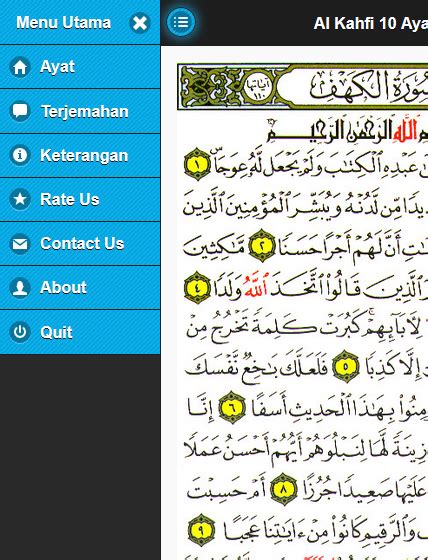 Menu Utama
Ayat
Terjemahan
Keterangan
Rate Us
Contact Us
About
Quit
Al Kahfi 10 Aya
سُورَةُ الْكَهْفِ
اللَّهِ الرَّحْمَٰنِ الرَّحِيمِ
عَبْدِهِ الْكِتَٰبَ وَلَمْ يَجْعَل لَّهُۥ عِوَجَاۜ ١
يدًا مِّن لَّدُنْهُ وَيُبَشِّرَ الْمُؤْمِنِينَ الَّذِينَ
اتِ أَنَّ لَهُمْ أَجْرًا حَسَنًا ٢ مَّٰكِثِينَ
الَّذِينَ قَالُوا اتَّخَذَ اللَّهُ وَلَدًا ٤
لِأٓبَآئِهِمْ ۚ كَبُرَتْ كَلِمَةً تَخْرُجُ مِنْ
إِلَّا كَذِبًا ٥ فَلَعَلَّكَ بَٰخِعٌ نَّفْسَكَ
مِنُوا بِهَٰذَا الْحَدِيثِ أَسَفًا ٦ إِنَّا
زِينَةً لَّهَا لِنَبْلُوَهُمْ أَيُّهُمْ أَحْسَنُ عَمَلًا
عَلَيْهَا صَعِيدًا جُرُزًا ٨ أَمْ حَسِبْتَ
وَالرَّقِيمِ كَانُوا مِنْ ءَايَٰتِنَا عَجَبًا ٩